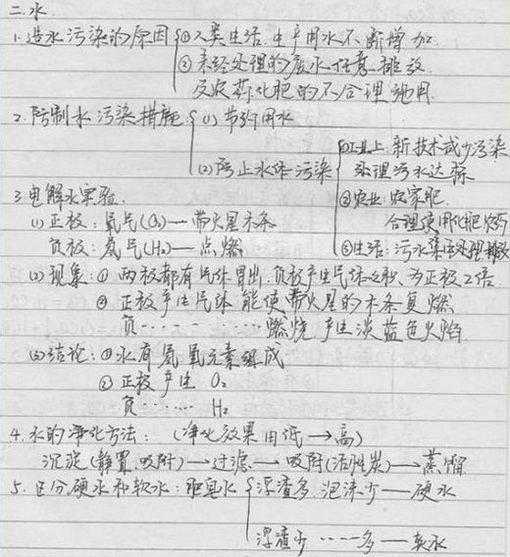 二.水
1.造水污染的原因 ①人类生活.生产用水不断增加
②未经处理的废水任意排放
及农药化肥的不合理施用.
2.防制水污染措施 (1)节约用水
(2)防止水体污染 ①工业上:新技术减少污染
处理污水达标
②农业:农家肥
合理使用化肥农药
③生活:污水集中处理排放
3.电解水实验.
(1)正极:氧气(O₂)—带火星木条
负极:氢气(H₂)—点燃
(2)现象:①两极都有气体冒出.负极产生气体 为正极2倍.
②正极产生气体 能使带火星的木条复燃
负…… 燃烧 产生淡蓝色火焰
(3)结论:①水有氢氧元素组成
②正极产生 O₂
负…… H₂
4.水的净化方法:(净化效果由低→高)
沉淀(静置.吸附)→过滤→吸附(活性炭)→蒸馏
5.区分硬水和软水:肥皂水 浮渣多 泡沫少——硬水
浮渣少 ……多——软水